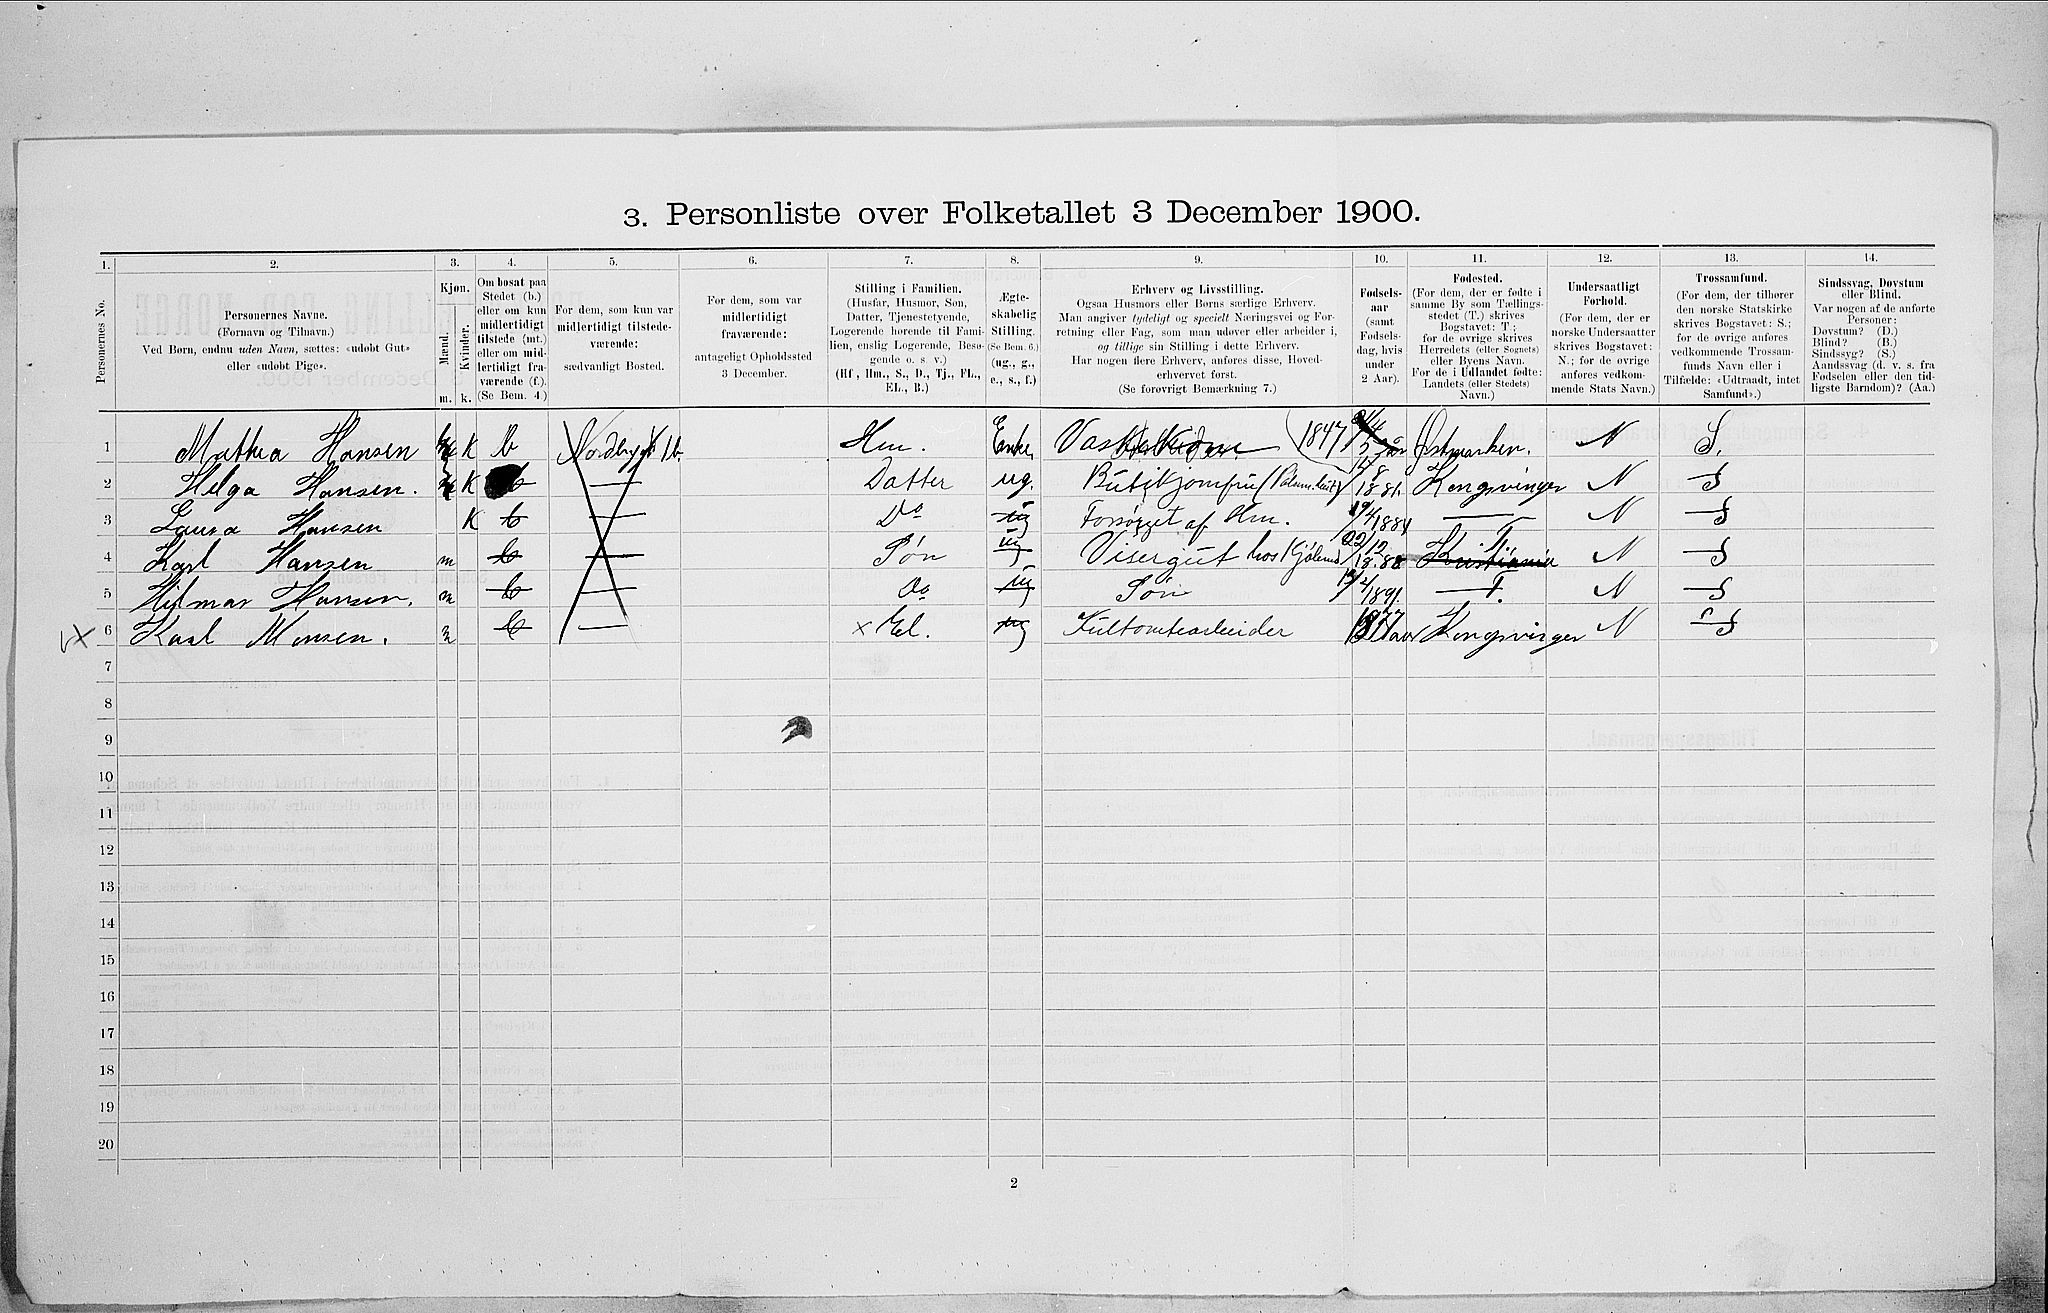 3. Personliste over Folketallet 3 December 1900.
1. 2. 3. 4. 5. 6. 7. 8. 9. 10. 11. 12. 13. 14.
Personernes No.
Personernes Navne.
(Fornavn og Tilnavn.)
Ved Børn, endnu uden Navn, sættes: «udøbt Gut»
eller «udøbt Pige».
Kjøn.
Mænd.
Kvinder.
m. k.
Om bosat paa
Stedet (b.)
eller om kun
midlertidigt
tilstede (mt.)
eller om mid-
lertidigt fra-
værende (f.)
(Se Bem. 4.)
For dem, som kun var
midlertidigt tilstede-
værende:
sædvanligt Bosted.
For dem, som var
midlertidigt
fraværende:
antageligt Opholdssted
3 December.
Stilling i Familien.
(Husfar, Husmor, Søn,
Datter, Tjenestetyende,
Logerende hørende til Fami-
lien, enslig Logerende, Besø-
gende o. s. v.)
(Hf., Hm., S., D., Tj., FL.,
EL., B.)
Ægte-
skabelig
Stilling.
(Se Bem. 6.)
(ug., g.,
e., s., f.)
Erhverv og Livsstilling.
Ogsaa Husmors eller Børns særlige Erhverv.
Man angiver tydeligt og specielt Næringsvei og For-
retning eller Fag, som man udøver eller arbeider i,
og tillige sin Stilling i dette Erhverv.
Har nogen flere Erhverv, anføres disse, Hoved-
erhvervet først.
(Se forøvrigt Bemærkning 7.)
Fødsels-
aar
(samt
Fødsels-
dag, hvis
under
2 Aar).
Fødested.
(For dem, der er fødte i
samme By som Tællings-
stedet (T.) skrives
Bogstavet: T.;
for de øvrige skrives
Herredets (eller Sognets)
eller Byens Navn.
For de i Udlandet fødte:
Landets (eller Stedets)
Navn.)
Undersaatligt
Forhold.
(For dem, der er
norske Undersaatter
skrives Bogstavet:
N.; for de øvrige
anføres vedkom-
mende Stats Navn.)
Trossamfund.
(For dem, der tilhører
den norske Statskirke
skrives Bogstavet: S.;
for de øvrige anføres
vedkommende Trossam-
funds Navn eller i
Tilfælde: «Udtraadt, intet
Samfund».)
Sindssvag, Døvstum
eller Blind.
Var nogen af de anførte
Personer:
Døvstum? (D.)
Blind? (B.)
Sindssyg? (S.)
Aandssvag (d. v. s. fra
Fødselen eller den tid-
ligste Barndom)? (Aa.)
1 Mathea Hansen K b Hm. Enke 1847 Østmarken. N S.
2 Helga Hansen. K b — Datter ug. Butikjomfru 17/8 1881. Kongsvinger N S
3 Laura Hansen K b — Do ug Forsørget af Hm. 19/4 1884 — N S
4 Karl Hansen m b — Søn ug Visergut hos 22/12 1888 Kristiania T. N S
5 Hilmar Hansen. m b — Do ug Søn 1891. — T. N S
6 Karl Monsen. m b — × El. ug Kultomtearbeider 1877 Kongsvinger N S
7
8
9
10
11
12
13
14
15
16
17
18
19
20
2